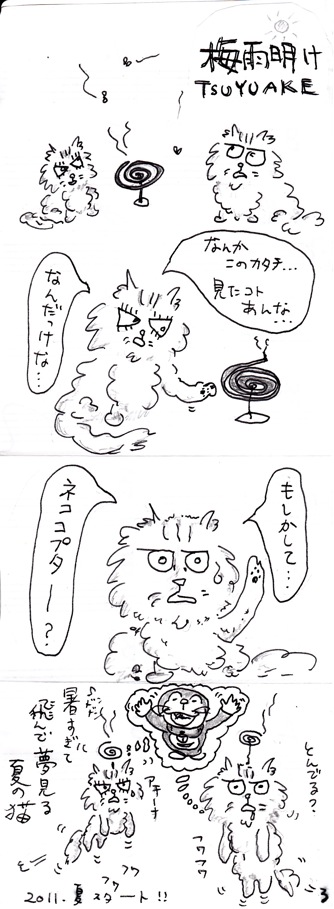 梅雨明け
TSUYUAKE
なんか
このカタチ…
見たコト
あんな…
なんだっけな…
もしかして…
ネココプター？
とんでる？
フワフワ
アチーナ
暑すぎて
飛んで夢見る
夏の猫
フワ
フワ
2011.夏スタート!!